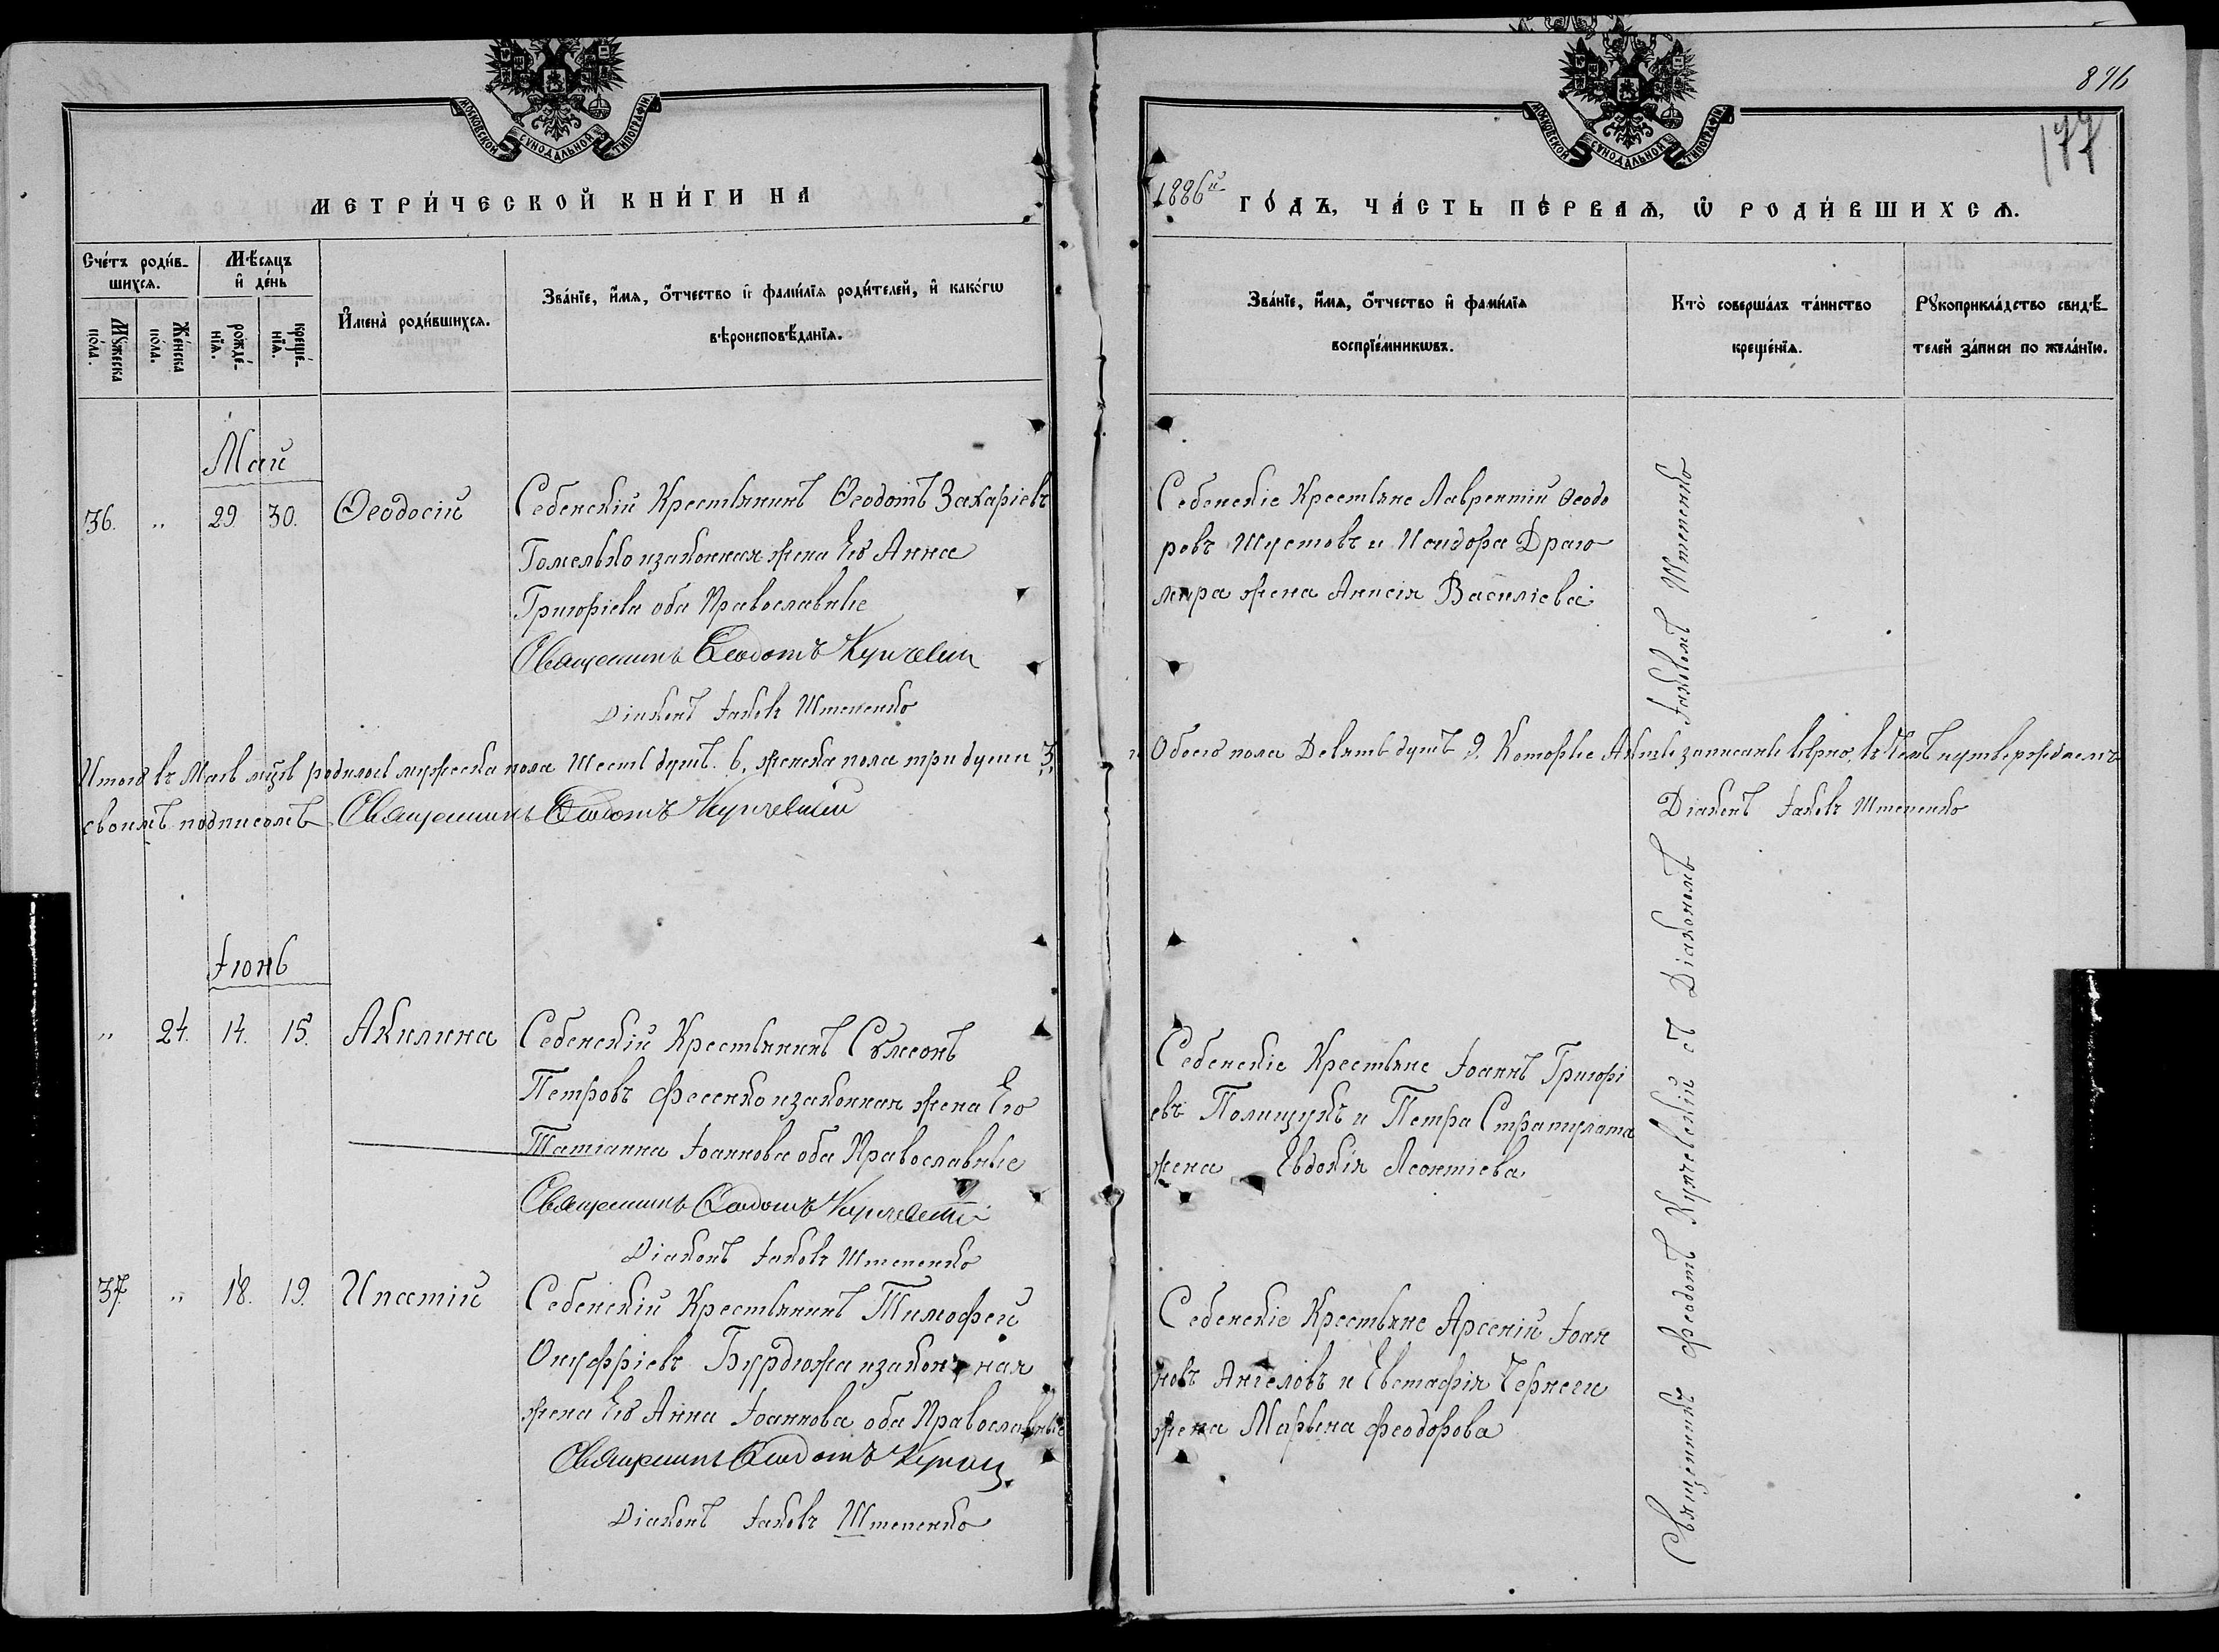 МОСКОВСКОЙ СѴНОДАЛЬНОЙ ТИПОГРАФІИ.
МЕТРИ́ЧЕСКОЙ КНИ́ГИ НА
Сче́тъ роди́в-
шихсѧ.
Мѣ́сѧцъ
и҆ де́нь
Мꙋ́жеска по́ла.
Же́нска по́ла.
рожде́-нїѧ.
креще́-нїѧ.
И҆мена̀ роди́вшихсѧ.
Зва́нїе, и҆́мѧ, ѻ҆́тчество и҆ фами́лїѧ роди́телей, и҆ како́гѡ
вѣроисповѣ́данїѧ.
Май
36. „ 29 30. Ѳеодосій
Себенскій Крестьянинъ Ѳеодотъ Захаріевъ
Гомелько и законная жена Его Анна
Григоріева оба Православные
Священникъ Ѳеодотъ Кунчевскій
Діаконъ Іаковъ Штепенко
Итого въ Маѣ мцѣ родилось мужеска пола Шесть душъ. 6, женска пола три души 3,
своимъ подписомъ Священникъ Ѳеодотъ Кунчевскій
Іюнь
„ 24. 14. 15. Акилина
Себенскій Крестьянинъ Сѵмеонъ
Петровъ Фесенко и законная жена Его
Татіанна Іоаннова оба Православные
Священникъ Ѳеодотъ Кунчевскій
Діаконъ Іаковъ Штепенко
37. „ 18. 19. Ипатій
Себенскій Крестьянинъ Тимофей
Онуфріевъ Бурдюжа и законная
жена Его Анна Іоаннова оба Православные
Священникъ Ѳеодотъ
Діаконъ Іаковъ Штепенко
896
177
МОСКОВСКОЙ СѴНОДАЛЬНОЙ ТИПОГРАФІИ.
1886й ГО́ДЪ, ЧА́СТЬ ПЕ́РВАѦ, Ѽ РОДИ́ВШИХСѦ.
Зва́нїе, и҆́мѧ, ѻ҆́тчество и҆ фами́лїѧ
воспрїе́мникѡвъ.
Кто̀ соверша́лъ та́инство
креще́нїѧ.
Рꙋкоприкла́дство свидѣ́-
телей за́писи по жела́нїю.
Себенскіе Крестьяне Лаврентій Ѳеодо
ровъ Шустовъ и Исидора Драго
мира жена Анисія Василіева
и Обоего пола Девять душъ 9. Которые Акты записаны верно, въ чемъ и утверждаемъ
Діаконъ Іаковъ Штепенко
Себенскіе Крестьяне Іоаннъ Григорі
евъ Полищукъ и Петра Стратулата
жена Евдокія Леонтіева
Себенскіе Крестьяне Арсеній Іоан
новъ Ангеловъ и Евстафія Чернеги
жена Марьяна Феодорова
Священникъ Феодотъ Кунчевскій съ Діакономъ Іаковомъ Штепенко